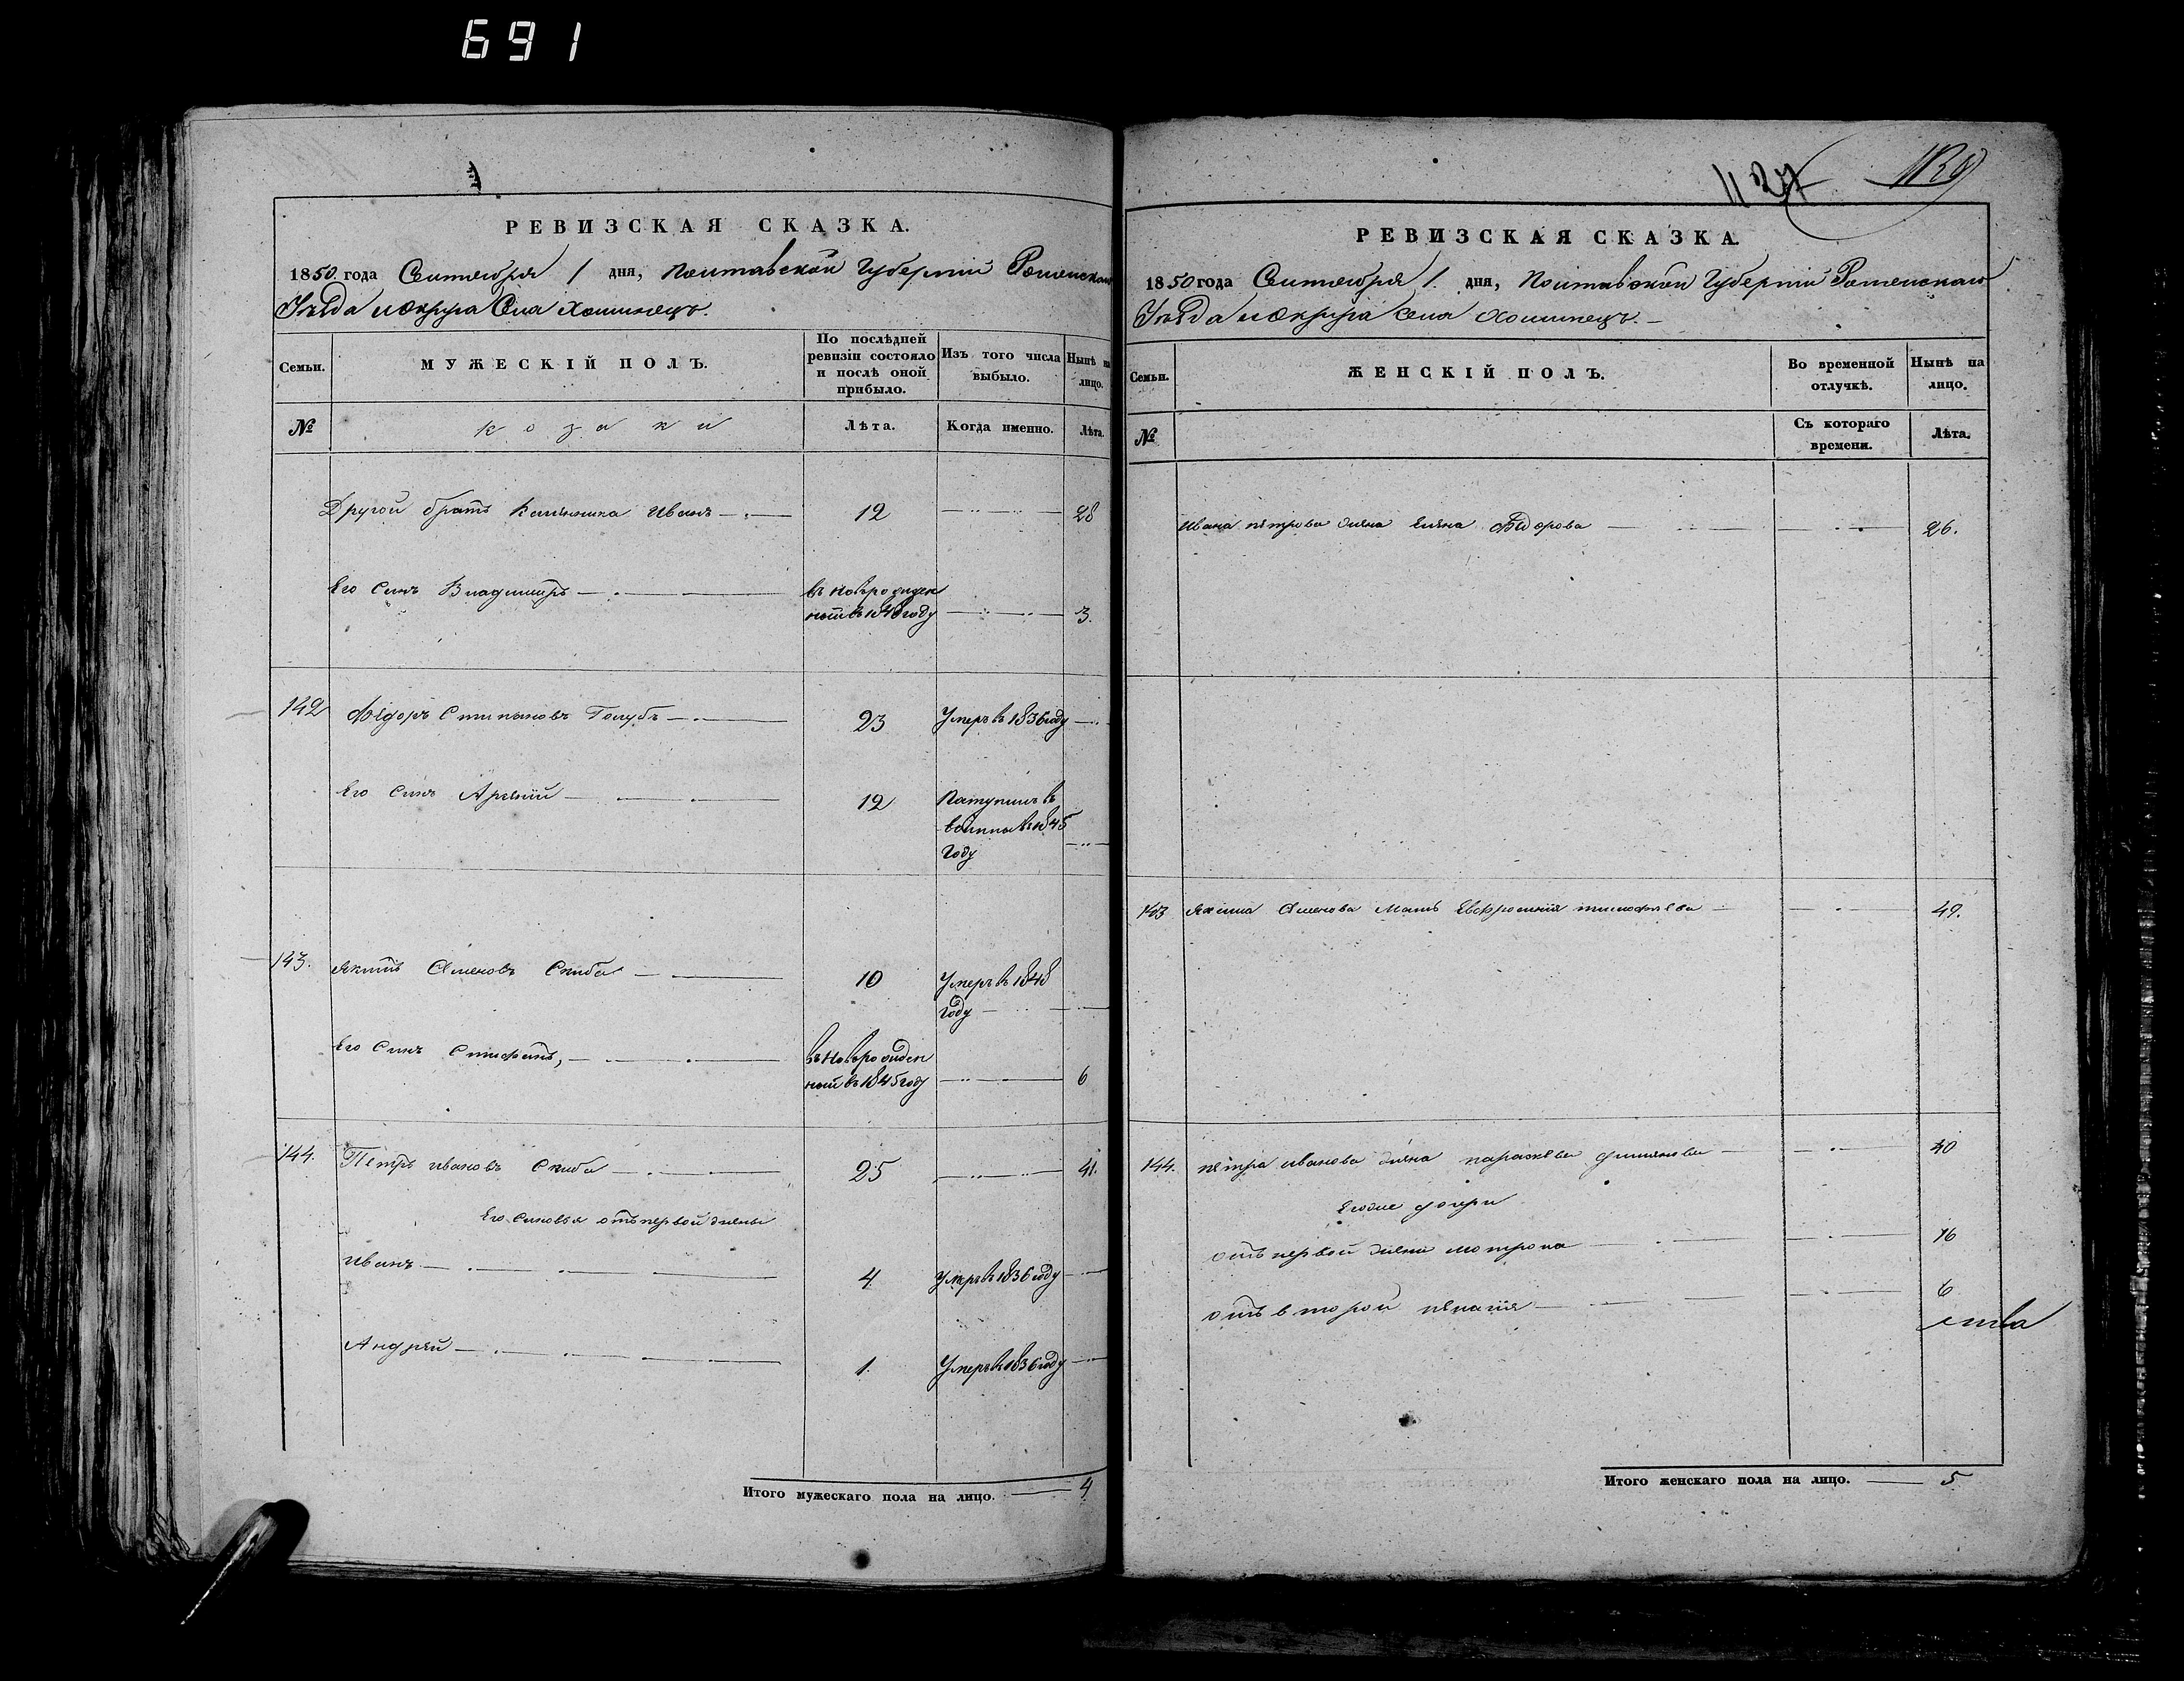 691
РЕВИЗСКАЯ СКАЗКА.
1850 года Сентября 1 дня, Полтавской Губернии Роменского
Уѣзда и Округа Села Хоминецъ.
Семьи.
МУЖЕСКІЙ ПОЛЪ.
По послѣдней ревизіи состояло и послѣ оной прибыло.
Изъ того числа выбыло.
Нынѣ на лицо.
№
козаки
Лѣта.
Когда именно.
Лѣта.
Другой братъ Иванъ 12 28
Его Синъ Владимиръ
въ новорожден
ный въ 1848 году 3.
142 Степановъ Голубъ 23 Умеръ въ 1836 году
Его Синъ 12 Поступилъ въ
въ 1845
году
143. Якимъ Семеновъ Скиба 10 Умеръ въ 1848
году
Его Синъ Стефанъ,
въ новорожден
ный въ 1845 году 6
144. Петръ Ивановъ Скиба 25 41.
Его Синовья отъ первой жены
Иванъ 4 Умеръ въ 1836 году
Андрей 1. Умеръ въ 1836 году
Итого мужескаго пола на лицо. 4
1127 1129
РЕВИЗСКАЯ СКАЗКА.
1850 года Сентября 1. дня, Полтавской Губерніи Роменскаго
Уѣзда и Округа Села Хоминецъ.
Семьи.
ЖЕНСКІЙ ПОЛЪ.
Во временной отлучкѣ.
Нынѣ на лицо.
№
Съ котораго времени.
Лѣта.
Ивана Петрова жена Елена 26.
143 Якима Семенова Мать Евфросинія Тимофеева 49.
144. Петра Иванова жена Параскева 40
Егоже дочери
отъ первой жени Мотрона 16
отъ второй Пелагія 6
Итого женскаго пола на лицо. 5